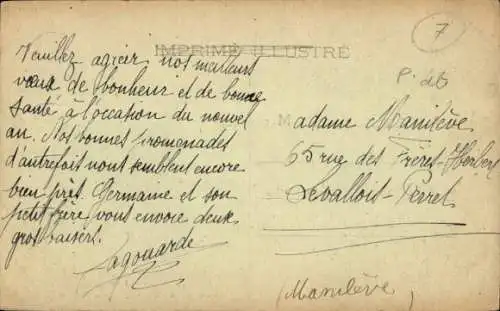 IMPRIMÉ ILLUSTRÉ
7
Veuillez agréer nos meilleurs
vœux de bonheur et de bonne
santé à l'occasion du nouvel
an. Nos bonnes promenades
d'autrefois nous semblent encore
bien près. Germaine et son
petit frère vous envoie deux
gros baisers.
Lagouarde
Madame Manilève
65 rue des Frères-Herbert
Levallois-Perret
(Manilève)